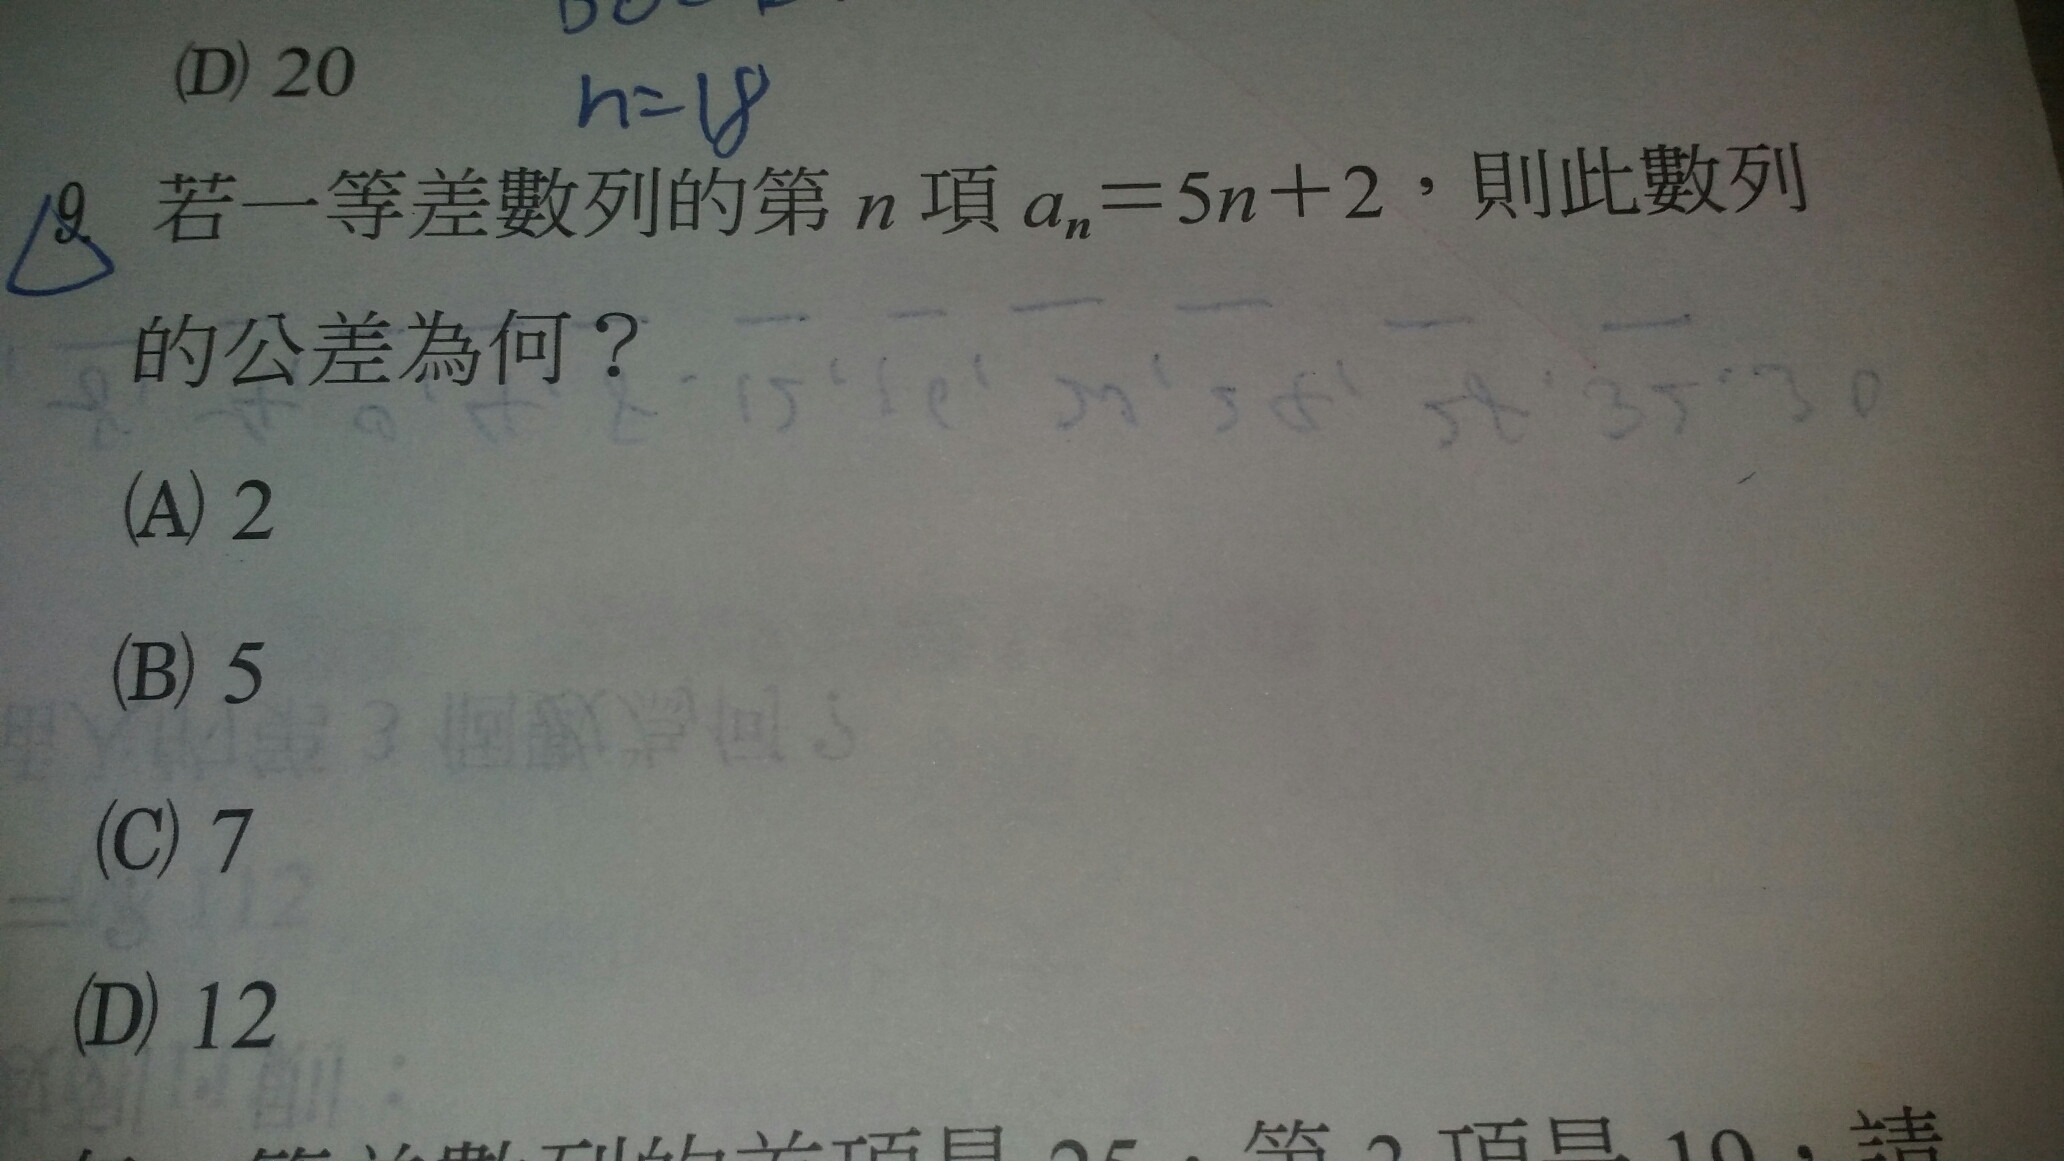 (D) 20
n=18
9. 若一等差數列的第 n 項 aₙ＝5n＋2，則此數列
的公差為何？
(A) 2
(B) 5
(C) 7
(D) 12
等差數列的首項是 25，第 3 項是 19，請